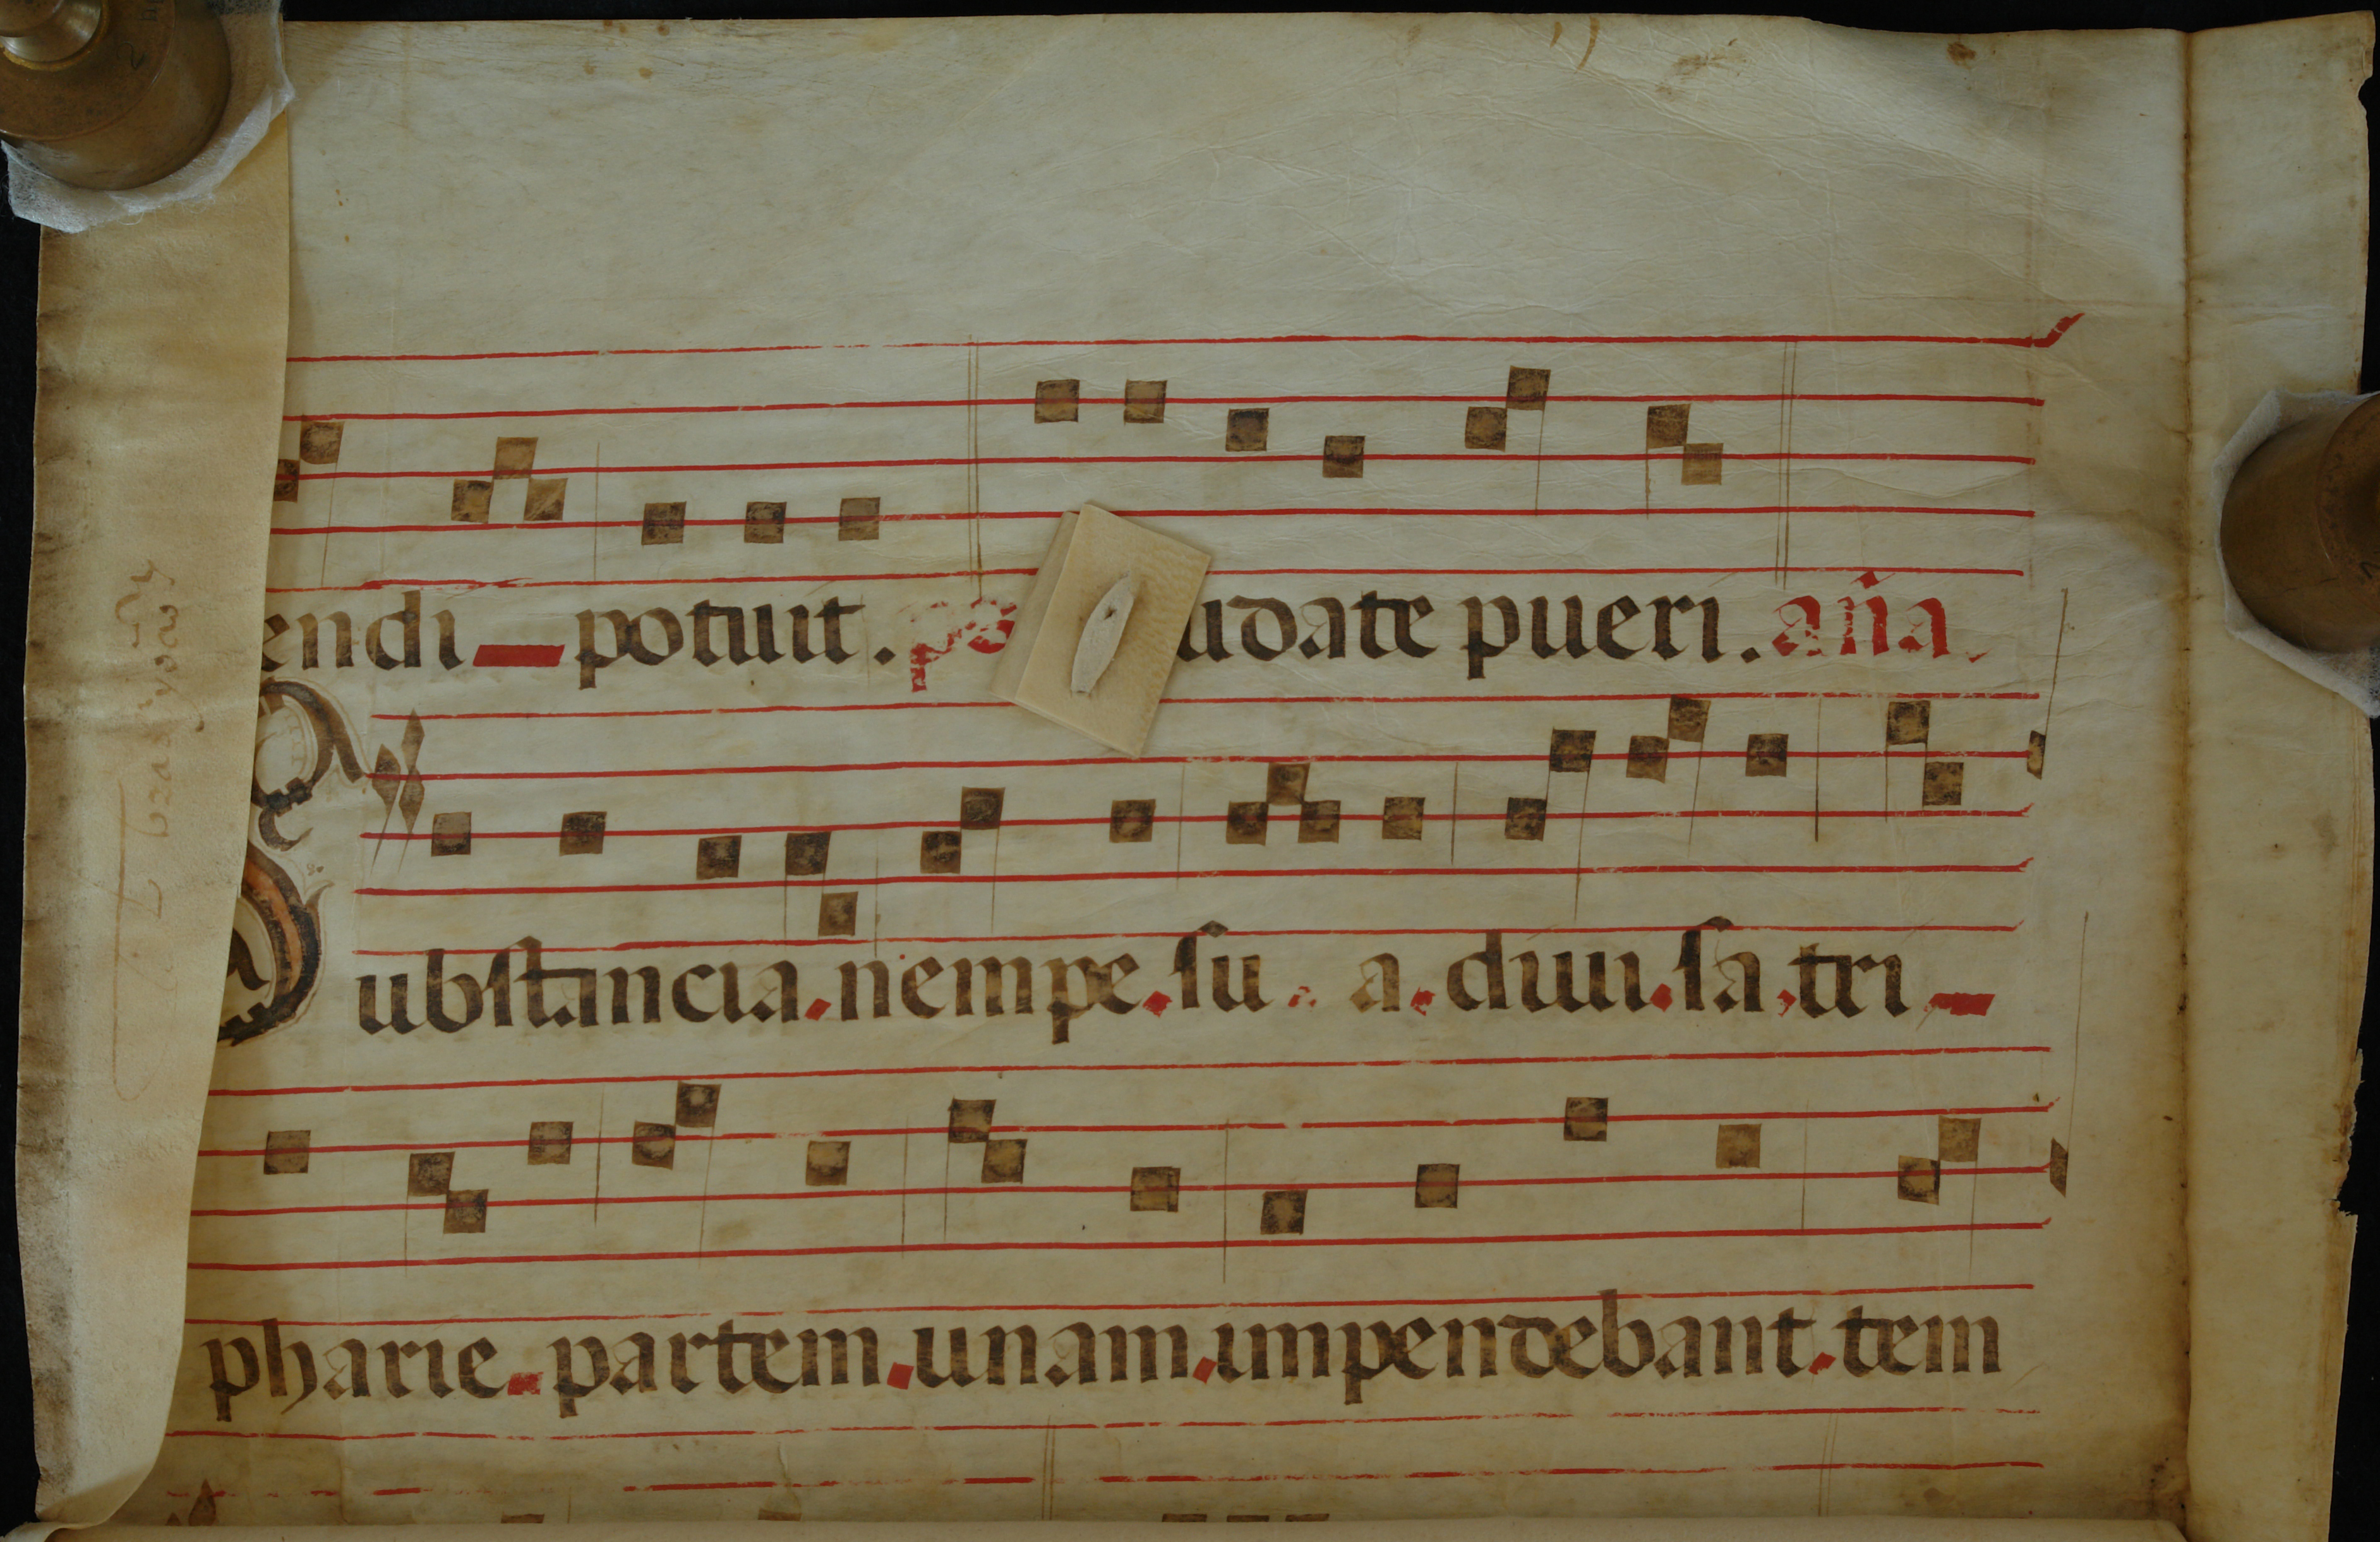 endi potuit. ps udate pueri. aña.
Substancia nempe su a diui sa tri
pharie partem unam impendebant tem